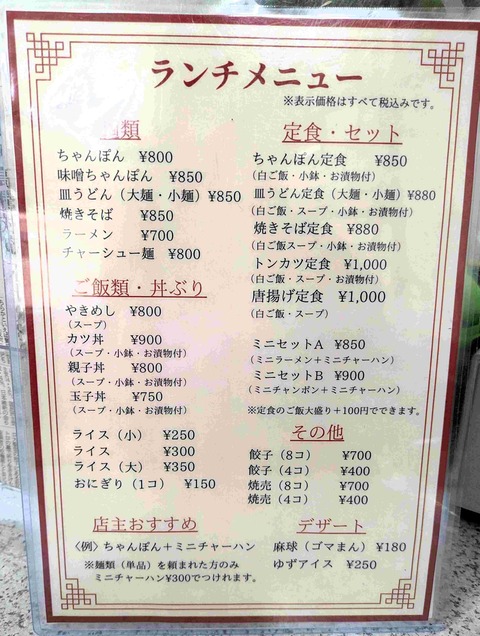 ランチメニュー
※表示価格はすべて税込みです。
類
ちゃんぽん ¥800
味噌ちゃんぽん ¥850
皿うどん(大麺・小麺)¥850
焼きそば ¥850
ラーメン ¥700
チャーシュー麺 ¥800
ご飯類・丼ぶり
やきめし ¥800
(スープ)
カツ丼 ¥900
(スープ・小鉢・お漬物付)
親子丼 ¥800
(スープ・小鉢・お漬物付)
玉子丼 ¥750
(スープ・小鉢・お漬物付)
ライス(小) ¥250
ライス ¥300
ライス(大) ¥350
おにぎり(1コ) ¥150
店主おすすめ
〈例〉ちゃんぽん+ミニチャーハン
※麺類(単品)を頼まれた方のみ
ミニチャーハン¥300でつけれます。
定食・セット
ちゃんぽん定食 ¥850
(白ご飯・小鉢・お漬物付)
皿うどん定食(大麺・小麺)¥880
(白ご飯・スープ・小鉢・お漬物付)
焼きそば定食 ¥880
(白ご飯スープ・小鉢・お漬物付)
トンカツ定食 ¥1,000
(白ご飯・スープ・小鉢・お漬物付)
唐揚げ定食 ¥1,000
(白ご飯・スープ)
ミニセットA ¥850
(ミニラーメン+ミニチャーハン)
ミニセットB ¥900
(ミニチャンポン+ミニチャーハン)
※定食のご飯大盛り+100円でできます。
その他
餃子(8コ) ¥700
餃子(4コ) ¥400
焼売(8コ) ¥700
焼売(4コ) ¥400
デザート
麻球(ゴマまん) ¥180
ゆずアイス ¥250